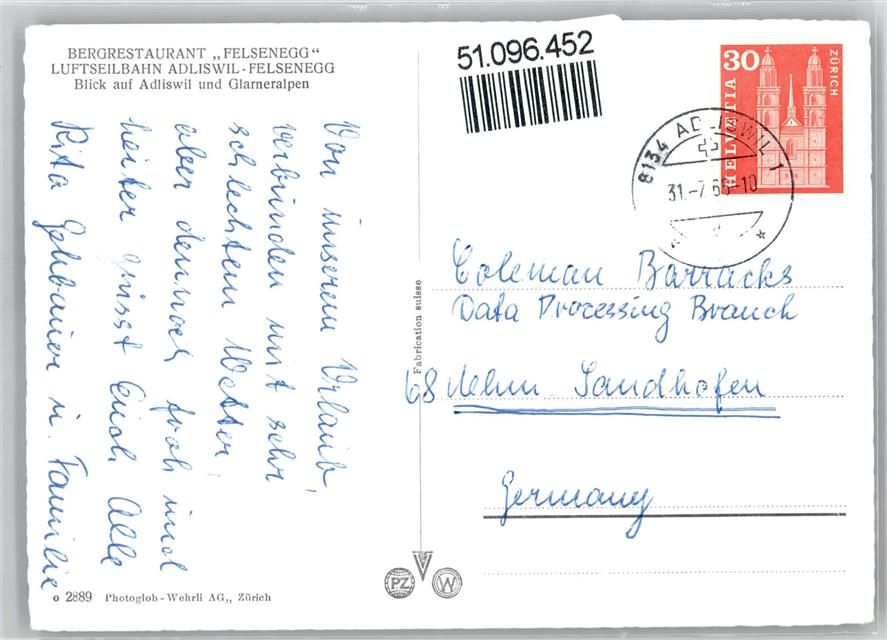 BERGRESTAURANT „FELSENEGG“
LUFTSEILBAHN ADLISWIL-FELSENEGG
Blick auf Adliswil und Glarneralpen
Von unserem Urlaub,
verbunden mit sehr
schlechtem Wetter,
aber dennoch froh und
heiter grüsst Euch Alle
Rita Gehbauer u. Familie
51.096.452
30
HELVETIA
ZÜRICH
8134 ADLISWIL 1
31.-7.66-10
Fabrication suisse
Coleman Barracks
Data Processing Branch
68 Mhm. Sandhofen
Germany
PZ
W
o 2889 Photoglob-Wehrli AG., Zürich